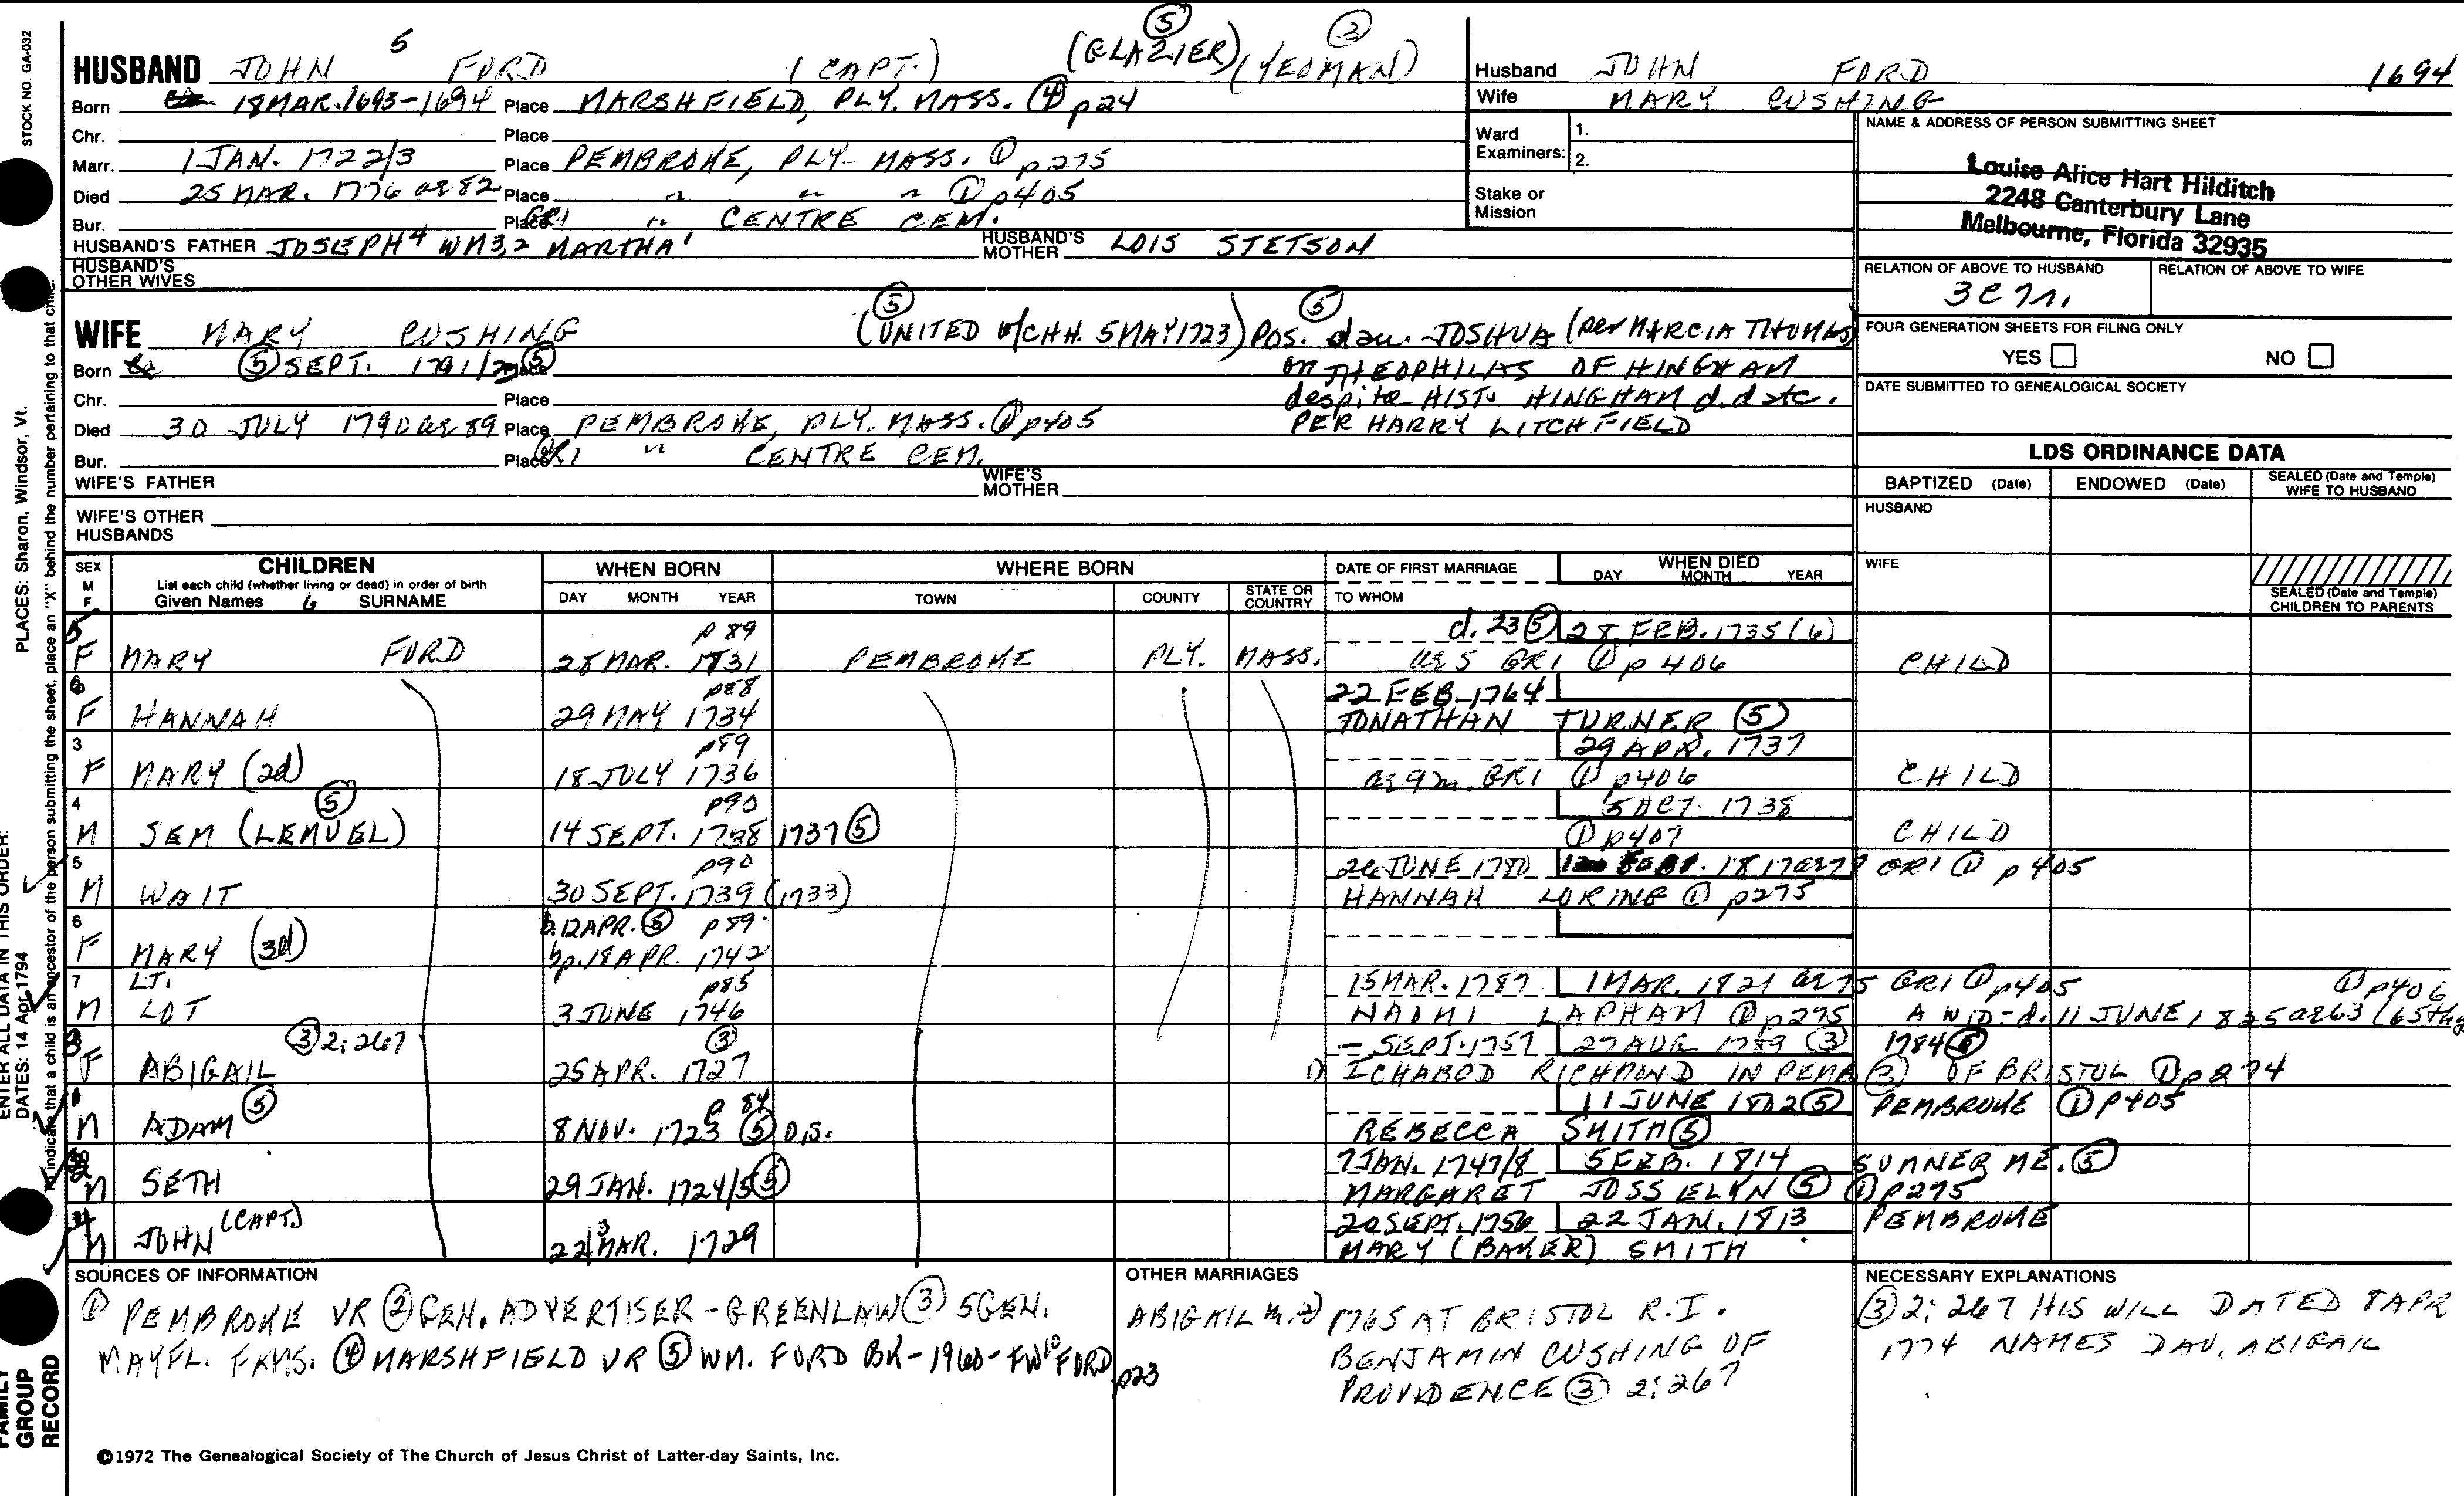 STOCK NO. GA-032
PLACES: Sharon, Windsor, Vt.
ENTER ALL DATA IN THIS ORDER:
DATES: 14 Apr 1794
To indicate that a child is an ancestor of the person submitting the sheet, place an "X" behind the number pertaining to that child.
FAMILY GROUP RECORD
HUSBAND JOHN 5 FORD (CAPT.) (GLAZIER) ⑤ (YEOMAN) ②
Born 18 MAR. 1693-1694 Place MARSHFIELD, PLY. MASS. ④ p24
Chr. Place
Marr. 1 JAN. 1722/3 Place PEMBROKE, PLY. MASS. ① p275
Died 25 MAR. 1776 ae 82 Place " " " ① p405
Bur. Place GR1 " CENTRE CEM.
HUSBAND'S FATHER JOSEPH4 WM3,2 MARTHA1 HUSBAND'S MOTHER LOIS STETSON
HUSBAND'S OTHER WIVES
WIFE MARY CUSHING (UNITED w/CHH. 5 MAY 1723) ⑤ POS. dau. JOSHUA ⑤ (per MARCIA THOMAS)
Born ⑤ SEPT. 1701/2 ⑤ Place or THEOPHILUS OF HINGHAM
Chr. Place despite HIST. HINGHAM d. date.
Died 30 JULY 1790 ae 89 Place PEMBROKE, PLY. MASS. ① p405 PER HARRY LITCHFIELD
Bur. Place GR1 " CENTRE CEM.
WIFE'S FATHER WIFE'S MOTHER
WIFE'S OTHER HUSBANDS
Husband JOHN FORD 1694
Wife MARY CUSHING
Ward Examiners: 1.
2.
Stake or Mission
NAME & ADDRESS OF PERSON SUBMITTING SHEET
Louise Alice Hart Hilditch
2248 Canterbury Lane
Melbourne, Florida 32935
RELATION OF ABOVE TO HUSBAND RELATION OF ABOVE TO WIFE
FOUR GENERATION SHEETS FOR FILING ONLY
YES NO
DATE SUBMITTED TO GENEALOGICAL SOCIETY
LDS ORDINANCE DATA
BAPTIZED (Date) ENDOWED (Date) SEALED (Date and Temple) WIFE TO HUSBAND
HUSBAND
WIFE
SEALED (Date and Temple) CHILDREN TO PARENTS
SEX M F CHILDREN List each child (whether living or dead) in order of birth Given Names 6 SURNAME
WHEN BORN DAY MONTH YEAR
WHERE BORN TOWN COUNTY STATE OR COUNTRY
DATE OF FIRST MARRIAGE TO WHOM
WHEN DIED DAY MONTH YEAR
5 p 89 d. 23 ⑤ 28 FEB. 1735 (6)
F MARY FORD 28 MAR. 1731 PEMBROKE PLY. MASS. ae 5 GR1 ① p 406 CHILD
6 p88 22 FEB. 1764
F HANNAH 29 MAY 1734 JONATHAN TURNER ⑤
3 p89 29 APR. 1737
F MARY (2d) 18 JULY 1736 ae 9 m. GR1 ① p406 CHILD
4 ⑤ p90 5 OCT. 1738
M SEM (LEMUEL) 14 SEPT. 1738 1737 ⑤ ① p407 CHILD
5 p90 26 JUNE 1780 SEPT. 1817 GR1 ① p 405
M WAIT 30 SEPT. 1739 (1733) HANNAH LORING ① p275
6 b. 12 APR. ⑤ p89
F MARY (3d) bp. 18 APR. 1742
7 LT. p85 15 MAR. 1787 1 MAR. 1821 ae 75 GR1 ① p405 ① p406
M LOT 3 JUNE 1746 NAOMI LAPHAM ① p275 A WID-d. 11 JUNE 1825 ae 63
3 ③ 2:267 ③ – SEPT. 1757 27 AUG 1789 ③ 1784 ⑤
F ABIGAIL 25 APR. 1727 1) ICHABOD RICHMOND IN PEMB ③ OF BRISTOL ① p274
1 p 84 11 JUNE 1802 ⑤ PEMBROKE ① p405
M ADAM ⑤ 8 NOV. 1723 ⑤ O.S. REBECCA SMITH ⑤
2 7 JAN. 1747/8 5 FEB. 1814 SUMNER ME. ⑤
M SETH 29 JAN. 1724/5 ⑤ MARGARET JOSSELYN ⑤ ① p275
4 20 SEPT. 1756 22 JAN. 1813 PEMBROKE
M JOHN (CAPT.) 22 MAR. 1729 MARY (BAKER) SMITH
SOURCES OF INFORMATION
① PEMBROKE VR ② GEN. ADVERTISER - GREENLAW ③ 5 GEN.
MAYFL. FAMS. ④ MARSHFIELD VR ⑤ WM. FORD BK - 1960 - FW10 FORD p23
OTHER MARRIAGES
ABIGAIL m. 2) 1765 AT BRISTOL R.I.
BENJAMIN CUSHING OF
PROVIDENCE ③ 2:267
NECESSARY EXPLANATIONS
③ 2:267 HIS WILL DATED 8 APR
1774 NAMES DAU. ABIGAIL
©1972 The Genealogical Society of The Church of Jesus Christ of Latter-day Saints, Inc.